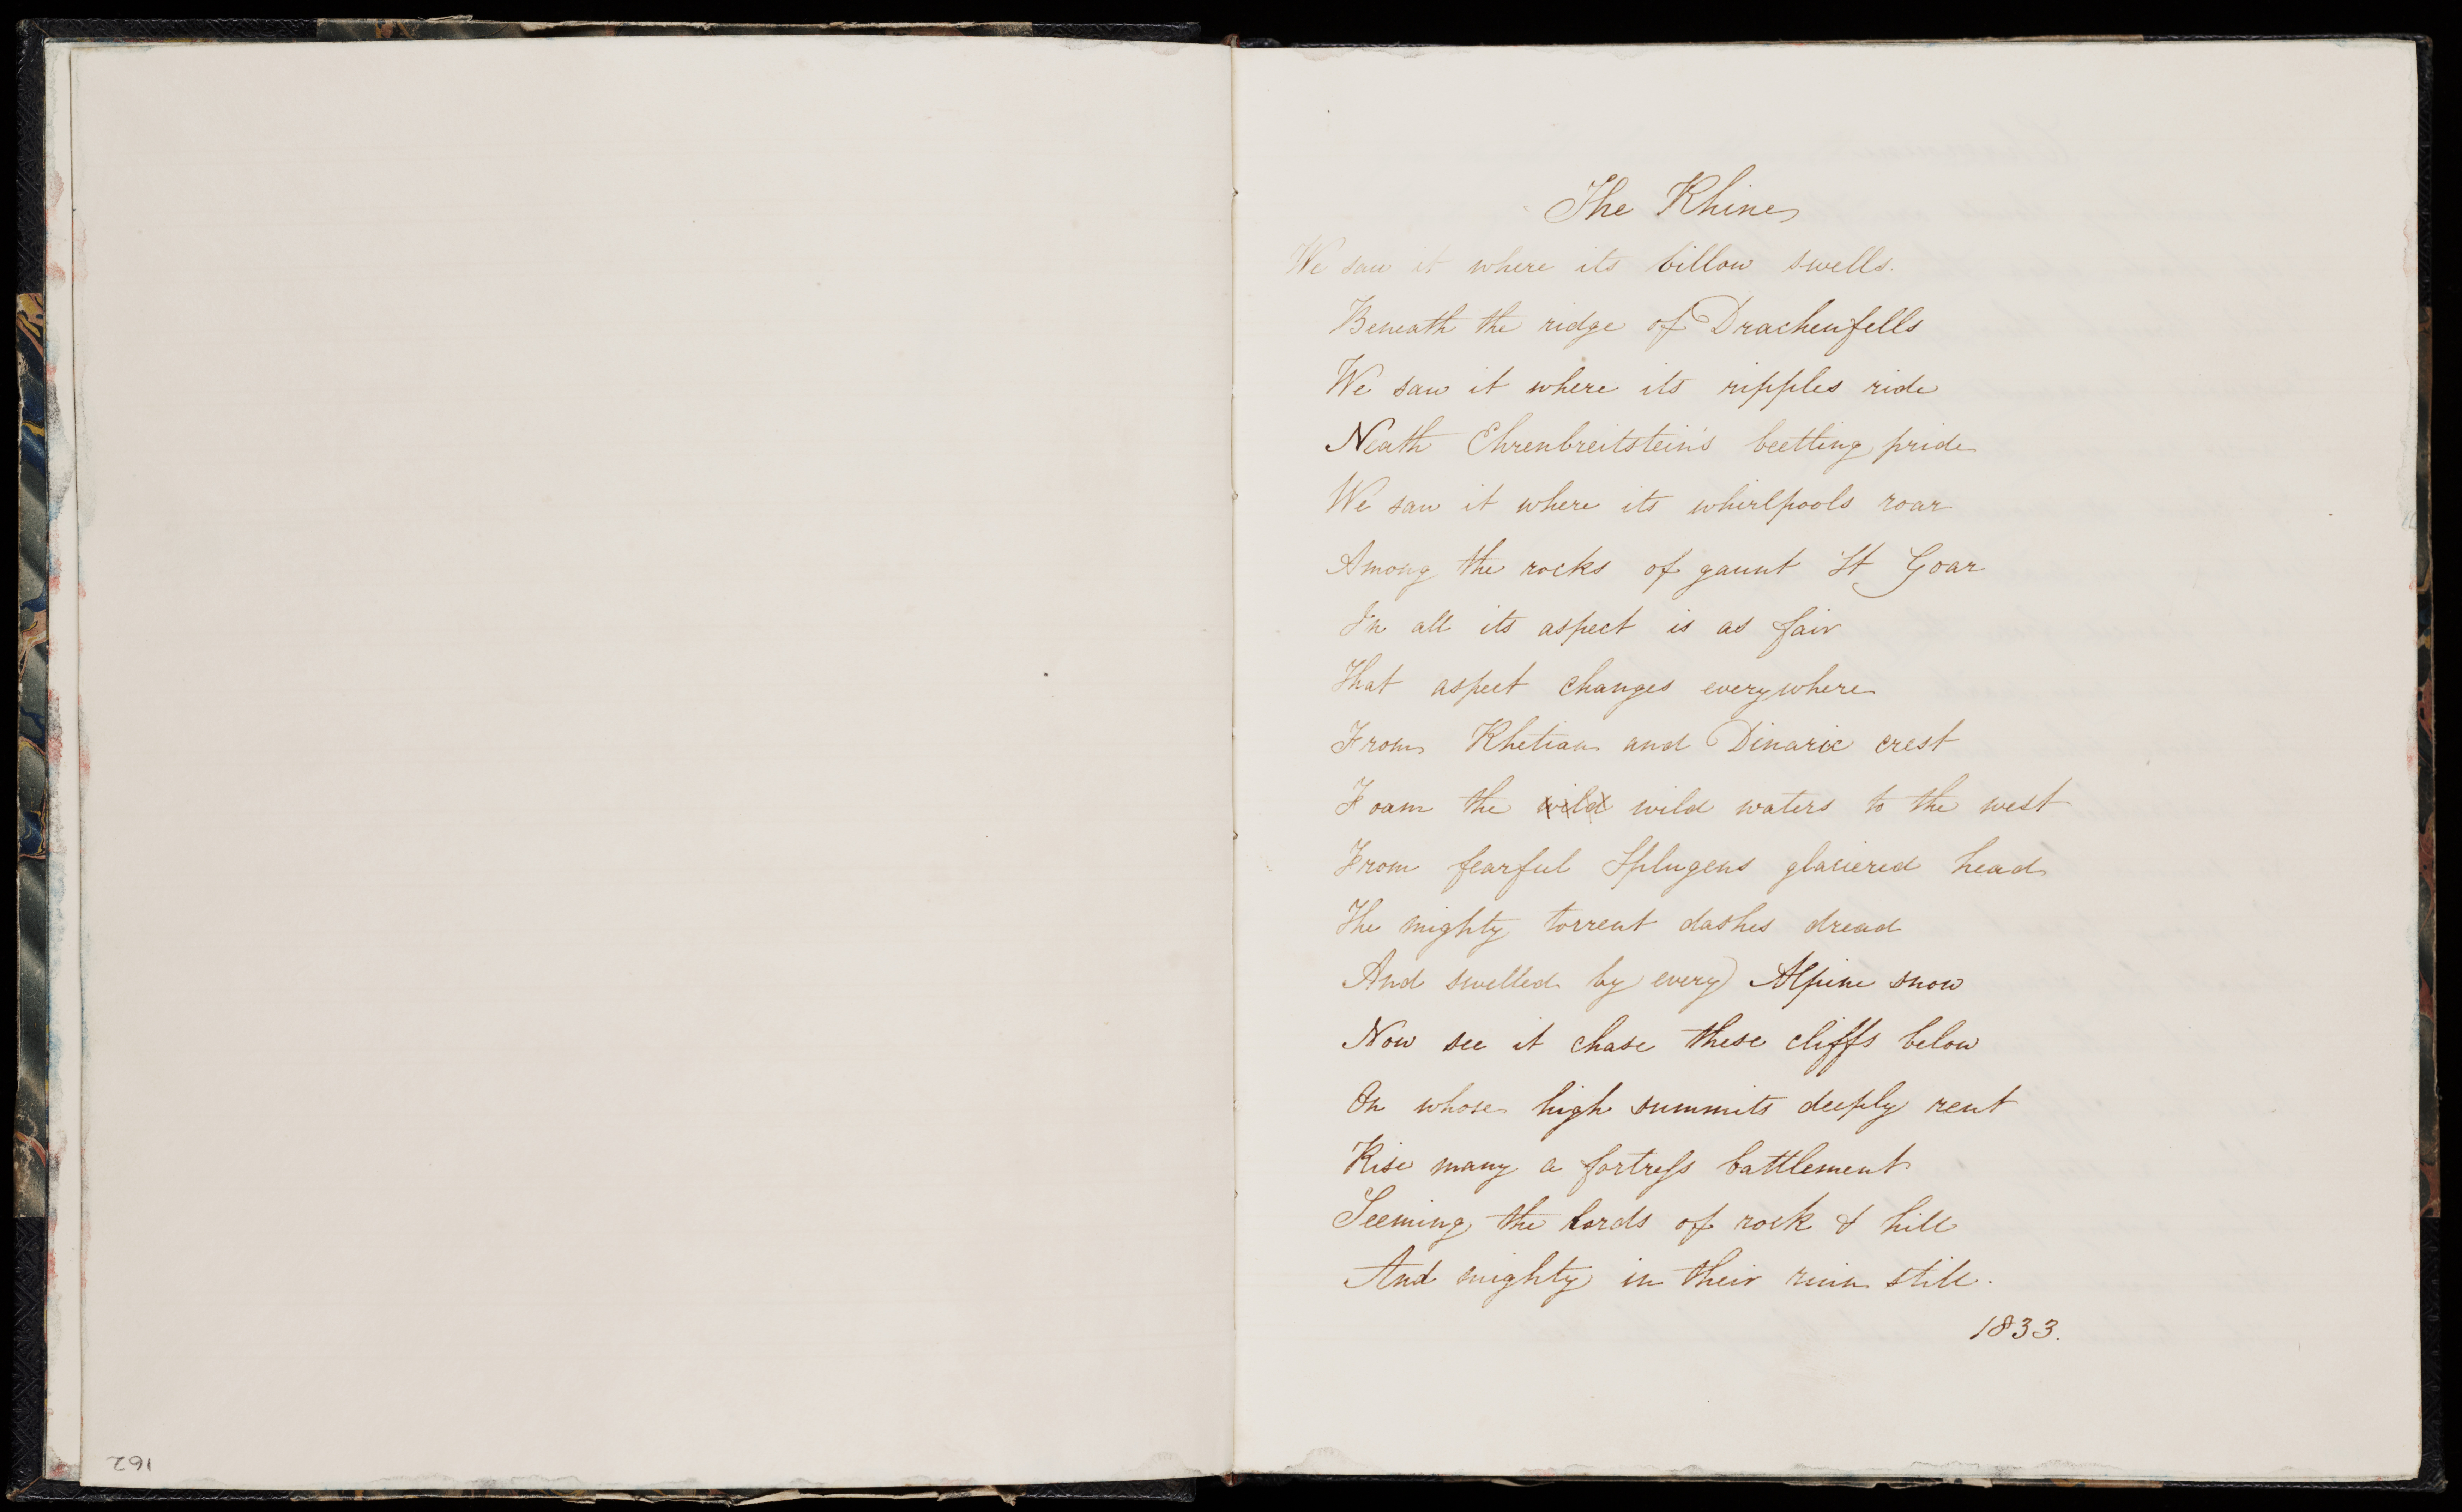 The Rhine
We saw it where its billow swells.
Beneath the ridge of Drachenfells
We saw it where its ripples ride
Neath Ehrenbreitstein's beetling pride
We saw it where its whirlpools roar
Among the rocks of gaunt St Goar
In all its aspect is as fair
That aspect changes everywhere
From Rhetian and Dinaric crest
Foam the wild wild waters to the west
From fearful Splugens glaciered head
The mighty torrent dashes dread
And swelled by every Alpine snow
Now see it chase these cliffs below
On whose high summits deeply rent
Rise many a fortress battlement
Seeming the lords of rock & hill
And mighty in their ruin still.
1833.
162